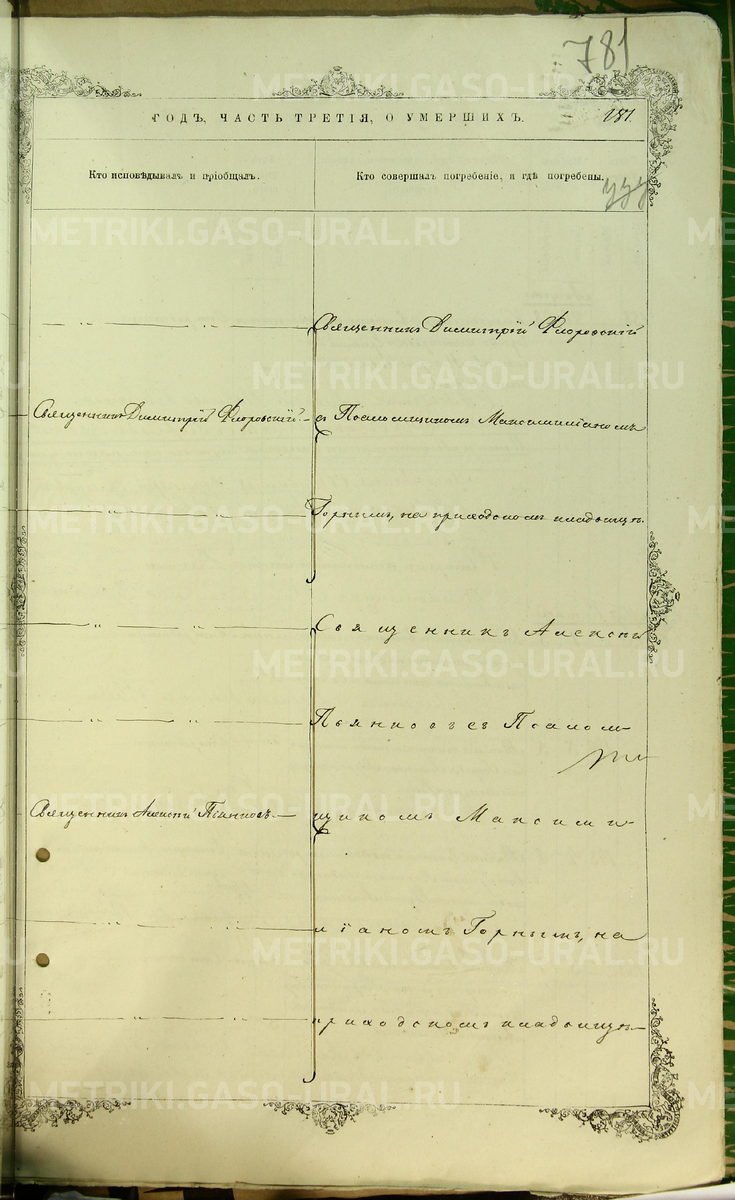 781
ГОДЪ, ЧАСТЬ ТРЕТІЯ, О УМЕРШИХЪ.
181.
Кто исповѣдывалъ и пріобщалъ.
Кто совершалъ погребеніе, и гдѣ погребены.
Священникъ Димитрій Флоровскій
Священникъ Димитрій Флоровскій
съ Псаломщикомъ Максимиліаномъ
Горнымъ, на приходскомъ кладбищѣ.
Священникъ Алексѣй
Пьянковъ съ Псалом-
Священникъ Алексѣй Пьянковъ
щикомъ Максими-
ліаномъ Горнымъ, на
приходскомъ кладбищѣ
METRIKI.GASO-URAL.RU